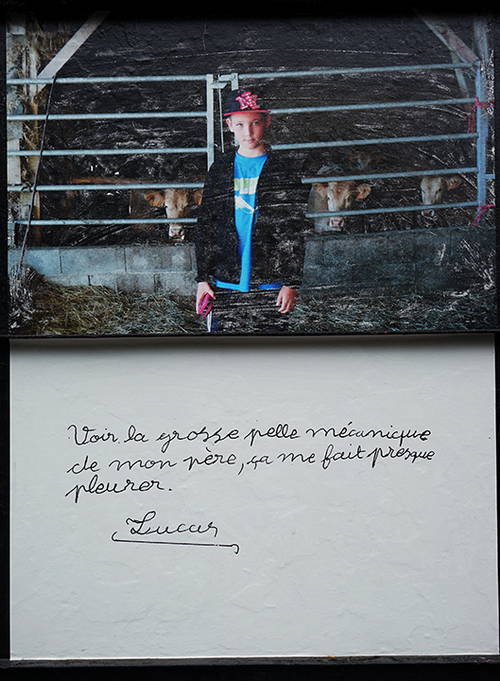 Voir la grosse pelle mécanique
de mon père, ça me fait presque
pleurer.
Lucas